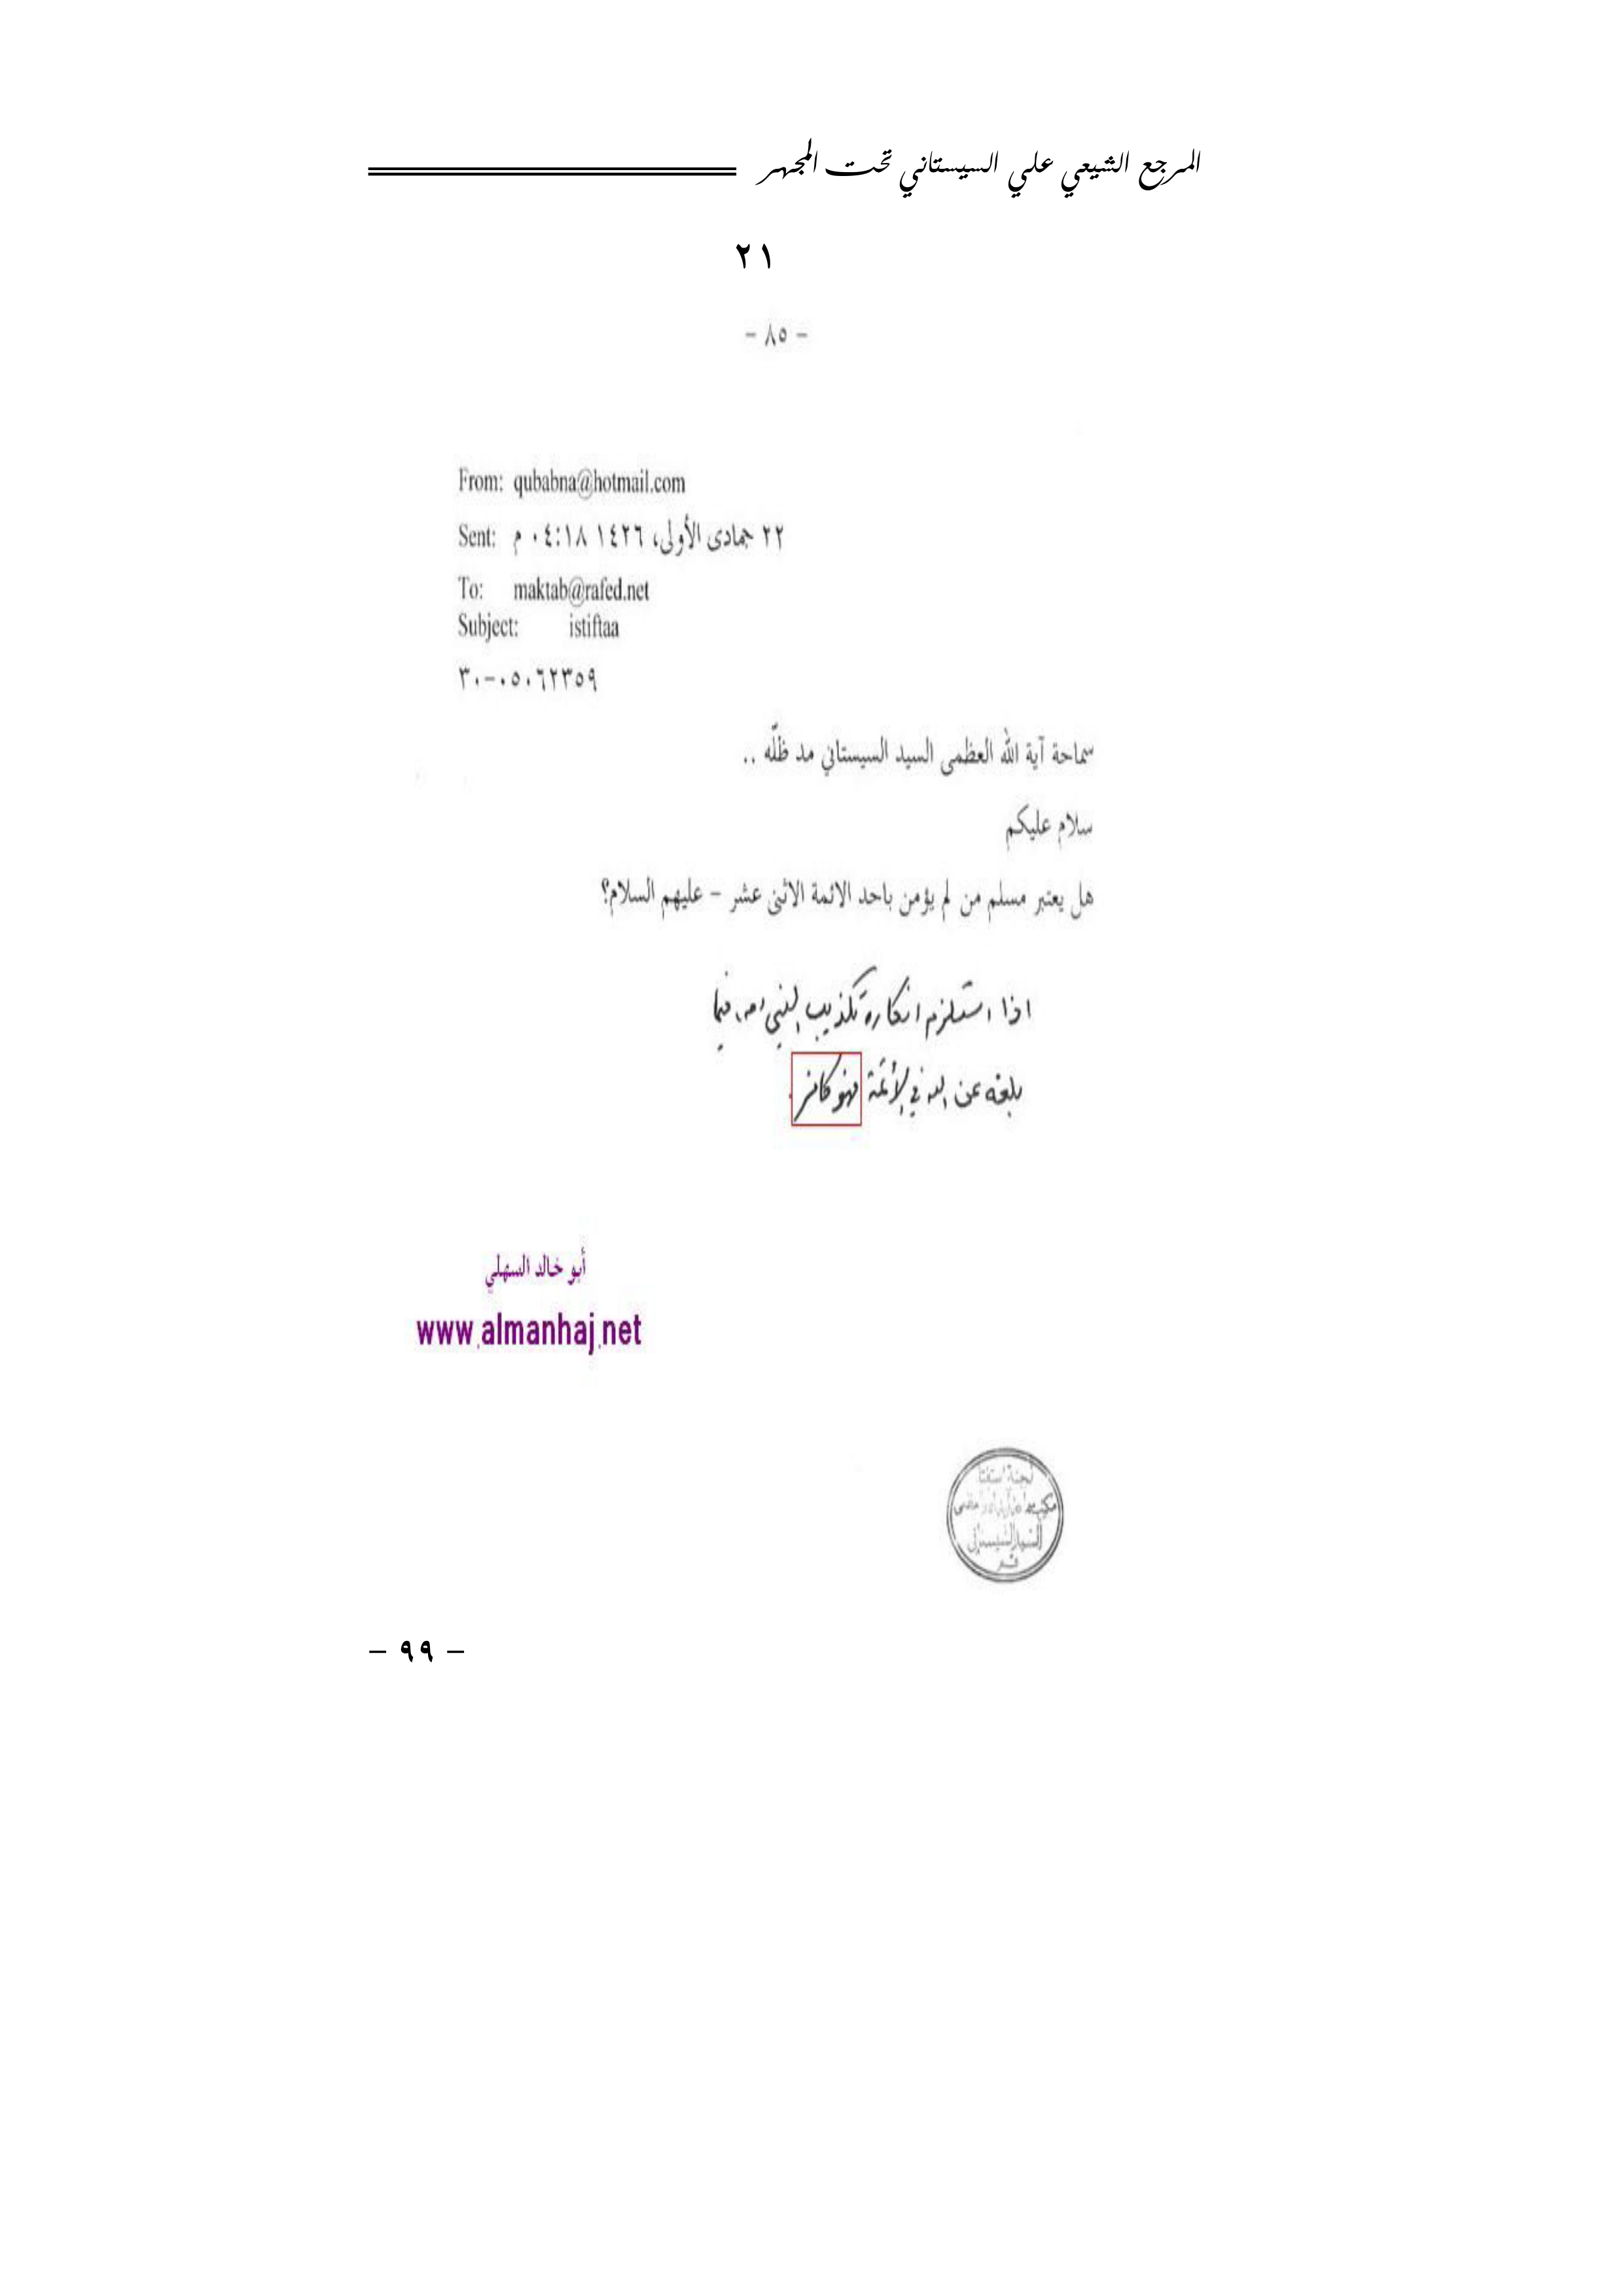 المرجع الشيعي علي السيستاني تحت المجهر
٢١
- ٨٥ -
From: qubabna@hotmail.com
Sent: ٢٢ جمادى الأولى، ١٤٢٦ ٠٤:١٨ م
To: maktab@rafed.net
Subject: istiftaa
٣٠-٠٥٠٦٢٣٥٩
سماحة آية الله العظمى السيد السيستاني مد ظلّه ..
سلام عليكم
هل يعتبر مسلم من لم يؤمن باحد الائمة الاثنى عشر - عليهم السلام؟
اذا استلزم انكاره تكذيب النبي (ص) فيما
بلغه عن الله في الأئمة فهو كافر.
أبو خالد السهلي
www.almanhaj.net
لجنة استفتا
السيد السيستاني
قم
- ٩٩ -